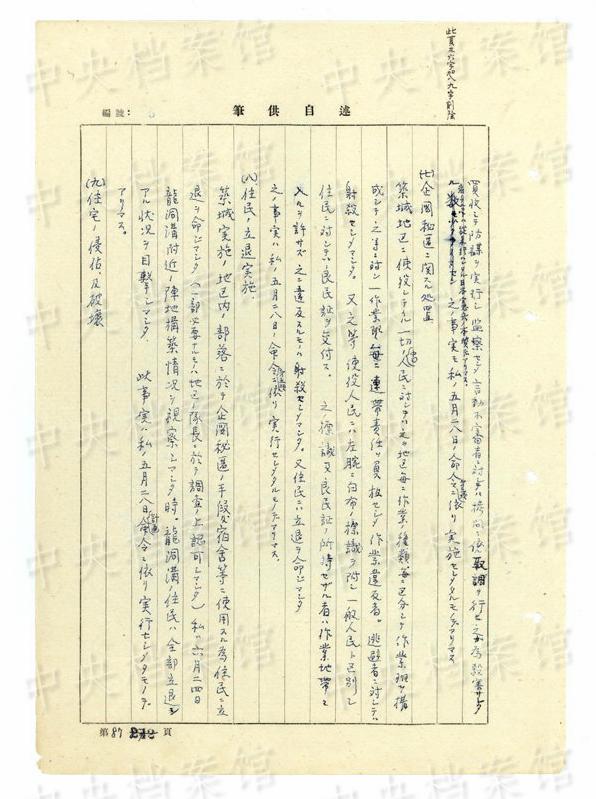 此頁五六字加入九字削除
編號:
筆供自述
買收シテ防諜ヲ実行シ監察セシメ言動不審者ニ対シテハ拷問ニ依取調ヲ行セ之ガ為殺害サレタ
之ノ事実モ私ノ五月二八日ノ命令ニ依リ実施セシメタルモノデアリマス
(七)企図秘匿ニ関スル処置
築城地区ニ使役シテル一切ノ住民ニ対シテハ之ヲ地区毎ニ作業ノ種類毎ニ区分シテ作業班ヲ構
成シテ之等ニ対シ一作業班毎ニ連帯責任ヲ負担セシメ作業違反者。逃避者ニ対シテハ
射殺セシメマシタ。又之等使役人民ニハ左腕ニ白布ノ標識ヲ附シ一般人民ト区別シ
住民ニ対シテハ良民証ヲ交付ス。之ノ標識又良民証ノ所持セザル者ハ作業地帯ニ
入ルヲ許サズ之ニ違反スルモノハ射殺セシメマシタ。又住民ニハ立退ヲ命ジマシタ
之ノ事実ハ私ノ五月二八日ノ命令ニ依リ実行セシメタルモノデアリマス。
(八)住民ノ立退実施.
築城実施ノ地区内ノ部落ニ於テ企図秘匿ノ手段及宿舎等ニ使用スル為住民ニ立
退ヲ命ジマシタ(一部必要ナルモノハ地区隊長ニ於テ調査ノ上認可シマシタ)私ハ六月二四日
龍洞溝附近ノ陣地構築情況ヲ視察シマシタ時。龍洞溝ノ住民ハ全部立退シ
アル状況ヲ目撃シマシタ 此事実ハ私ノ五月二八日計画命令ニ依リ実行セシメタモノデ
アリマス。
(九)住宅ノ侵佔及破壊
第87頁
中央档案馆